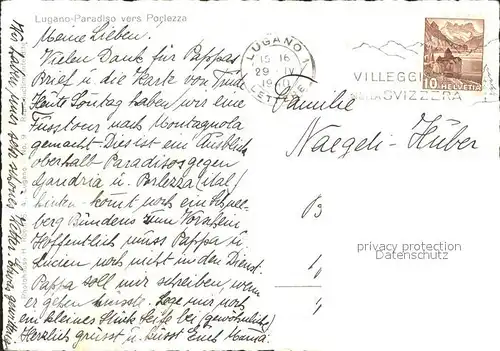 Lugano-Paradiso vers Porlezza
Meine Lieben.
Vielen Dank für Pappas
Brief u. die Karte von Trudi
Heute Sonntag haben wir eine
Fusstour nach Montagnola
gemacht Dies ist ein Ausblick
oberhalb Paradiso gegen
Gandria u. Porlezza (ital)
hinten kommt noch ein Schnee-
berg Bündens zum Vorschein
Hoffentlich muss Pappa u.
Lucien noch nicht in den Dienst.
Pappa soll mir schreiben, wenn
er gehen müsste. Lege mir noch
ein kleines Stück Seife bei (gewöhnliche)
Herzlich grüsst u. küsst Euch Mamma.
Wir haben nun sehr schönes Wetter
LUGANO 1
15 16
29 IV
LETTERE
VILLEGGI
SVIZZERA
10 HELVETIA
Familie
Naegeli-Huber
privacy protection
Datenschutz